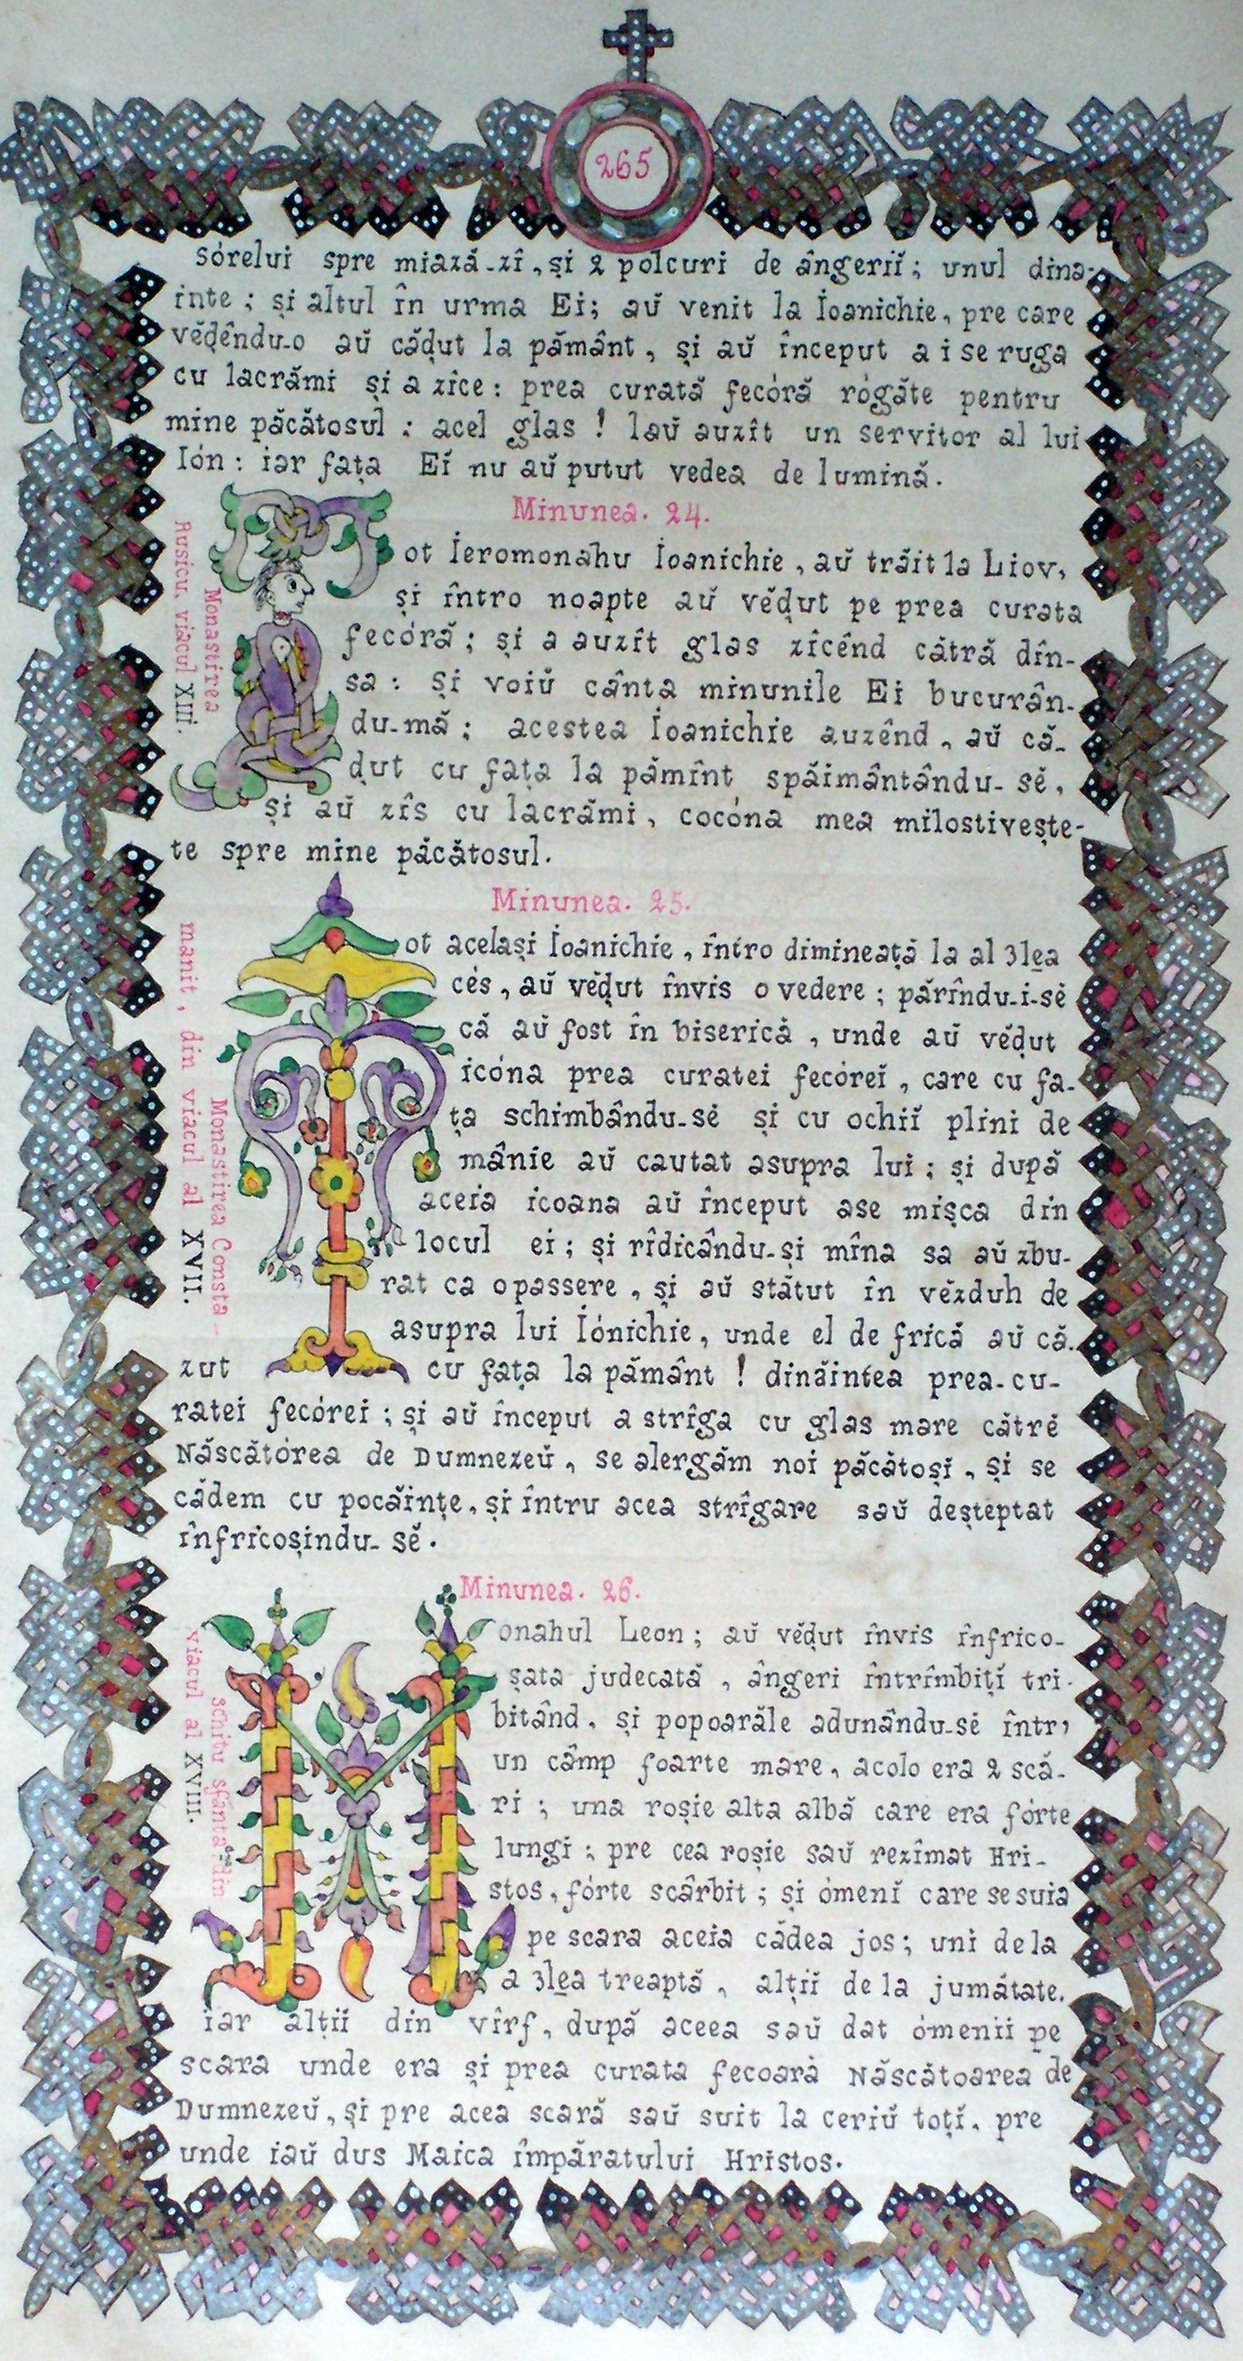 265
Sórelui spre miază-zî, și 2 polcuri de ângeriĭ; unul dina-
inte; și altul în urma Ei; aŭ venit la Ioanichie, pre care
vĕḑêndu-o aŭ cáḑut la pământ, și aŭ început a i se ruga
cu lacrămi și a zîce: prea curată fecóră rógăte pentru
mine păcătosul; acel glas! laŭ auzît un servitor al lui
Ión: iar fața Eĭ nu aŭ putut vedea de lumină.
Minunea. 24.
Tot Ieromonahu Ioanichie, aŭ trăit la Liov,
și întro noapte aŭ vĕḑut pe prea curata
fecóră; și a auzît glas zîcênd cătră dîn-
sa: Și voiŭ cânta minunile Ei bucurân-
du-mă; acestea Ioanichie auzênd, aŭ că-
ḑut cu fața la pămînt spăimântându-sĕ,
și aŭ zîs cu lacrămi, cocóna mea milostivește-
te spre mine păcătosul.
Rusicu. viacul XIII.
Monastirea
Minunea. 25.
Tot același Ioanichie, întro dimineață la al 3lea
cés, aŭ vĕḑut învis o vedere; părîndu-i-sĕ
că aŭ fost în biserică, unde aŭ vĕḑut
icóna prea curatei fecóreĭ, care cu fa-
ța schimbându-sĕ și cu ochiĭ plini de
mânie aŭ cautat asupra lui; și după
aceia icoana aŭ început ase mișca din
locul ei; și rîdicându-și mîna sa aŭ zbu-
rat ca o passere, și aŭ stătut în vĕzduh de
asupra lui Iónichie, unde el de frică aŭ că-
zut cu fața la pământ! dinăintea prea-cu-
ratei fecórei; și aŭ început a strîga cu glas mare cătrĕ
Născătórea de Dumnezeŭ, se alergăm noi păcătoși, și se
cădem cu pocăințe, și întru acea strîgare saŭ deșteptat
înfricoșindu-sĕ.
manit, din viacul al XVII.
Monastirea Consta-
Minunea. 26.
Monahul Leon; aŭ vĕḑut învis înfrico-
șata judecată, ângeri întrîmbițĭ tri-
bitând, și popoarăle adunându-sĕ într,
un câmp foarte mare, acolo era 2 scă-
ri; una roșie alta albă care era fórte
lungi; pre cea roșie saŭ rezîmat Hri-
stos, fórte scârbit; și ómenĭ care se suia
pe scara aceia cădea jos; uni de la
a 3lea treaptă, alțiĭ de la jumătate,
iar alții din vîrf, după aceea saŭ dat ómenii pe
scara unde era și prea curata fecoară Născătoarea de
Dumnezeŭ, și pre acea scară saŭ suit la ceriŭ toțĭ, pre
unde iaŭ dus Maica împăratului Hristos.
viacul al XVIII.
schitu sfânta din